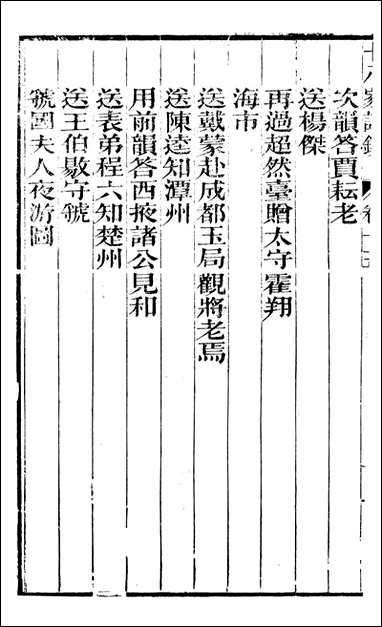 十八家詩鈔 卷十
次韻答賈耘老
送楊傑
再過超然臺贈太守霍翔
海市
送戴蒙赴成都玉局觀將老焉
送陳逵知潭州
用前韻答西掖諸公見和
送表弟程六知楚州
送王伯敭守虢
虢國夫人夜游圖